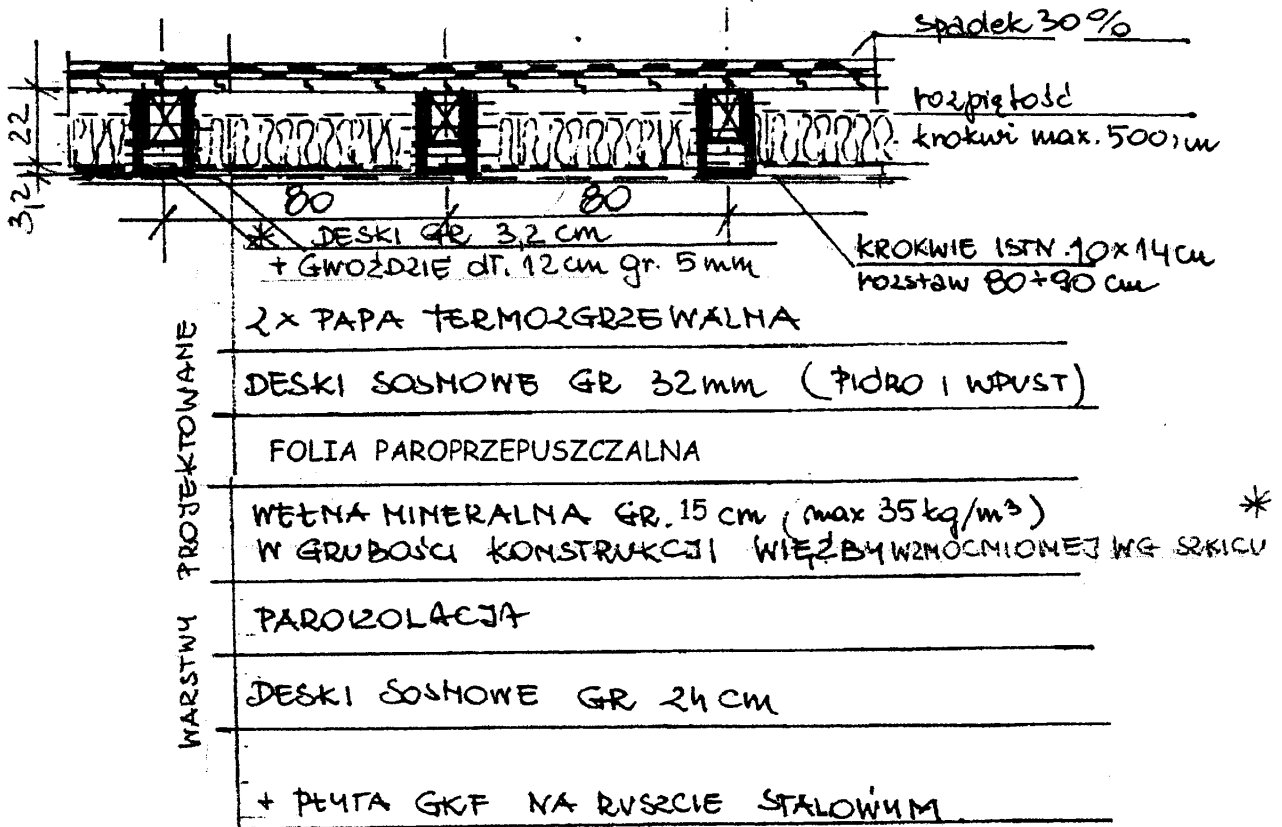 spadek 30%
rozpiętość
krokwi max. 500 cm
22
3,2
80
80
* DESKI GR 3,2 cm
+ GWOŹDZIE dł. 12 cm gr. 5 mm
KROKWIE ISTN. 10x14 cm
rozstaw 80÷90 cm
WARSTWY PROJEKTOWANE
2x PAPA TERMOZGRZEWALNA
DESKI SOSNOWE GR 32mm (PIÓRO I WPUST)
FOLIA PAROPRZEPUSZCZALNA
WEŁNA MINERALNA GR. 15 cm (max 35 kg/m³) *
W GRUBOŚCI KONSTRUKCJI WIĘŹBY WZMOCNIONEJ WG SZKICU
PAROIZOLACJA
DESKI SOSNOWE GR 24 cm
+ PŁYTA GKF NA RUSZCIE STALOWYM